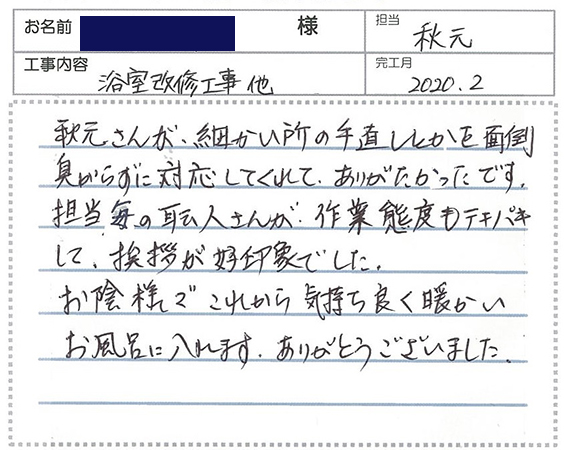 お名前 様 担当 秋元
工事内容 浴室改修工事他 完工月 2020.2
秋元さんが、細かい所の手直しとかを面倒
臭がらずに対応してくれて、ありがたかったです。
担当毎の職人さんが、作業態度もテキパキ
して、挨拶が好印象でした。
お陰様で これから気持ち良く暖かい
お風呂に入れます。ありがとうございました。